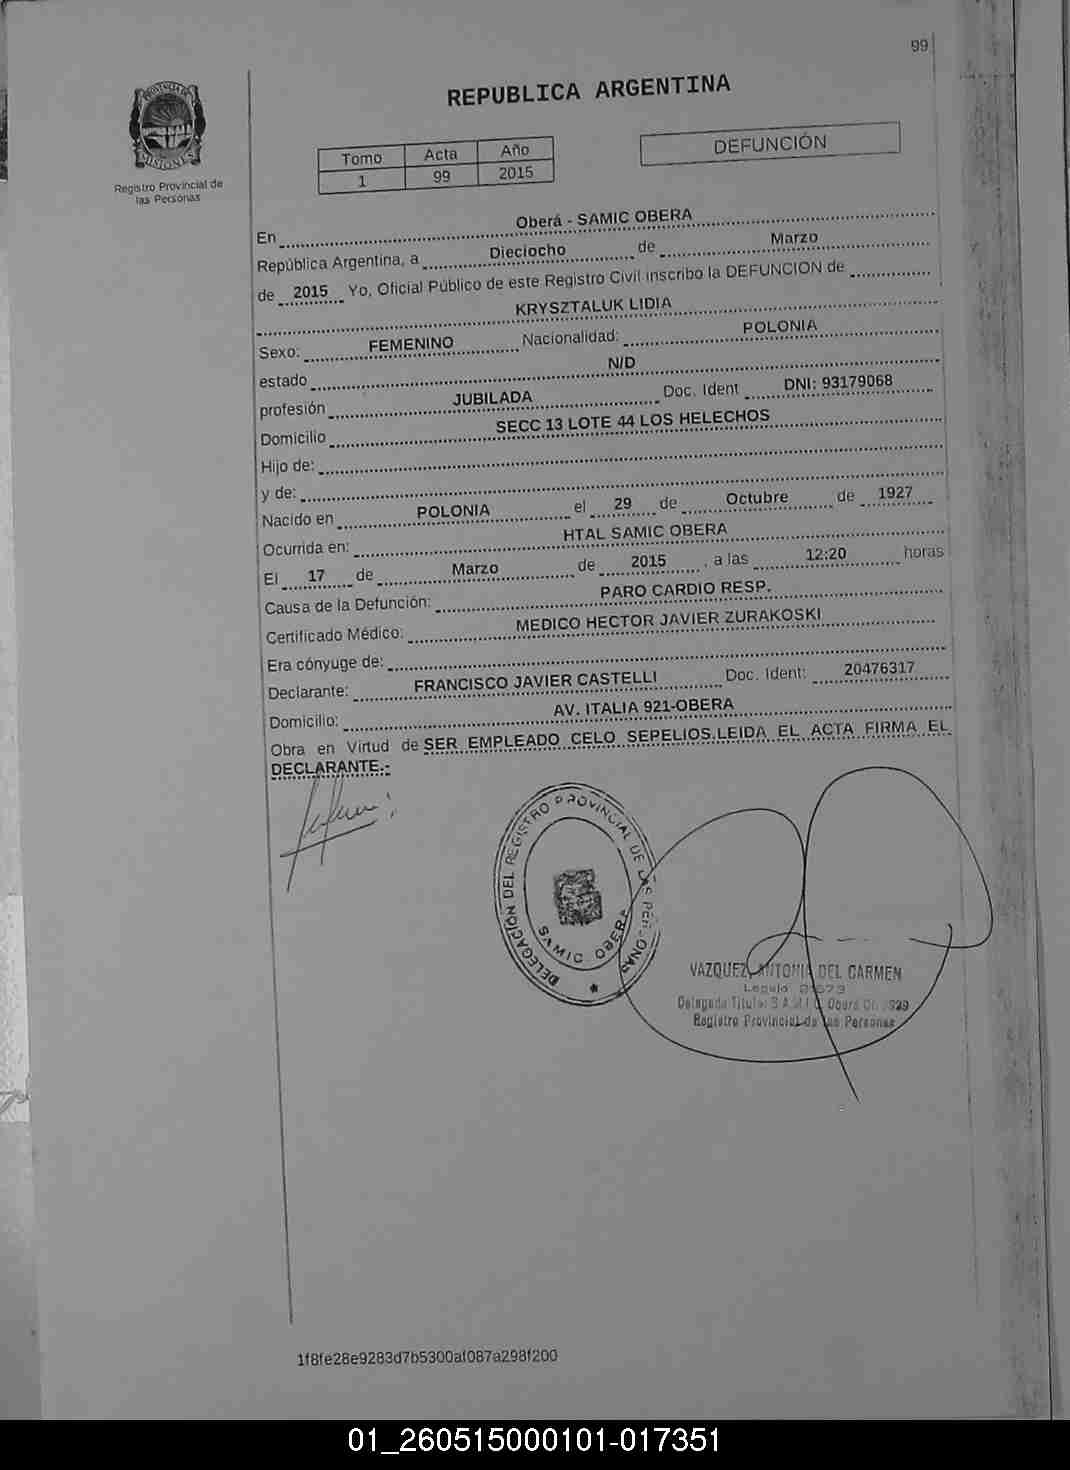 99
PROVINCIA DE
MISIONES
Registro Provincial de
las Personas
REPUBLICA ARGENTINA
Tomo Acta Año
1 99 2015
DEFUNCIÓN
En Oberá - SAMIC OBERA
República Argentina, a Dieciocho de Marzo
de 2015 Yo, Oficial Público de este Registro Civil inscribo la DEFUNCION de
KRYSZTALUK LIDIA
Sexo: FEMENINO Nacionalidad: POLONIA
estado N/D
profesión JUBILADA Doc. Ident DNI: 93179068
Domicilio SECC 13 LOTE 44 LOS HELECHOS
Hijo de:
y de:
Nacido en POLONIA el 29 de Octubre de 1927
Ocurrida en: HTAL SAMIC OBERA
El 17 de Marzo de 2015, a las 12:20 horas
Causa de la Defunción: PARO CARDIO RESP.
Certificado Médico: MEDICO HECTOR JAVIER ZURAKOSKI
Era cónyuge de:
Declarante: FRANCISCO JAVIER CASTELLI Doc. Ident: 20476317
Domicilio: AV. ITALIA 921-OBERA
Obra en Virtud de SER EMPLEADO CELO SEPELIOS.LEIDA EL ACTA FIRMA EL
DECLARANTE.-
DELEGACIÓN DEL REGISTRO PROVINCIAL DE LAS PERSONAS
SAMIC OBERA
VAZQUEZ, ANTONIA DEL CARMEN
Legajo
Delegada Titular S.A.M.I.C. Oberá
Registro Provincial de las Personas
1f8fe28e9283d7b5300af087a298f200
01_260515000101-017351